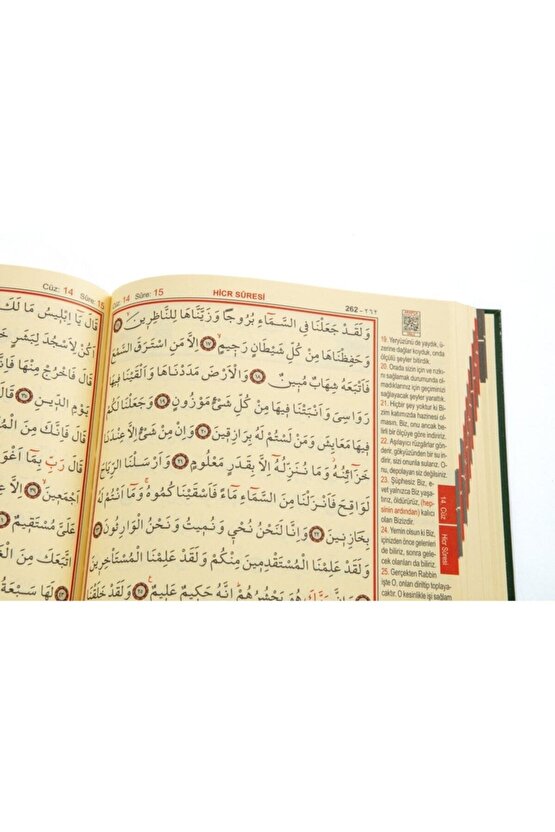 Cüz: 14 Sûre: 15 HİCR SÛRESİ 262 - ٢٦٢
وَلَقَدْ جَعَلْنَا فِي السَّمَٓاءِ بُرُوجاً وَزَيَّنَّاهَا لِلنَّاظِر۪ينَۙ
وَحَفِظْنَاهَا مِنْ كُلِّ شَيْطَانٍ رَج۪يمٍۙ ﴿١٧﴾ اِلَّا مَنِ اسْتَرَقَ السَّمْعَ
فَاَتْبَعَهُ شِهَابٌ مُب۪ينٌ ﴿١٨﴾ وَالْاَرْضَ مَدَدْنَاهَا وَاَلْقَيْنَا ف۪يهَا
رَوَاسِيَ وَاَنْبَتْنَا ف۪يهَا مِنْ كُلِّ شَيْءٍ مَوْزُونٍ ﴿١٩﴾ وَجَعَلْنَا لَكُمْ
ف۪يهَا مَعَايِشَ وَمَنْ لَسْتُمْ لَهُ بِرَازِق۪ينَ ﴿٢٠﴾ وَاِنْ مِنْ شَيْءٍ اِلَّا عِنْدَنَا
خَزَٓائِنُهُۘ وَمَا نُنَزِّلُهُٓ اِلَّا بِقَدَرٍ مَعْلُومٍ ﴿٢١﴾ وَاَرْسَلْنَا الرِّيَاحَ
لَوَاقِحَ فَاَنْزَلْنَا مِنَ السَّمَٓاءِ مَٓاءً فَاَسْقَيْنَاكُمُوهُۚ وَمَٓا اَنْتُمْ لَهُ
بِخَازِن۪ينَ ﴿٢٢﴾ وَاِنَّا لَنَحْنُ نُحْي۪ وَنُم۪يتُ وَنَحْنُ الْوَارِثُونَ ﴿٢٣﴾
وَلَقَدْ عَلِمْنَا الْمُسْتَقْدِم۪ينَ مِنْكُمْ وَلَقَدْ عَلِمْنَا الْمُسْتَأْخِر۪ينَ
وَاِنَّ رَبَّكَ هُوَ يَحْشُرُهُمْۜ اِنَّهُ حَك۪يمٌ عَل۪يمٌ۟ ﴿٢٥﴾ وَلَقَدْ خَلَقْنَا
19. Yeryüzünü de yaydık, ü-
zerine dağlar koyduk, onda
ölçülü şeyler bitirdik.
20. Orada sizin için ve rızkı-
nı sağlamak durumunda ol-
madıklarınız için geçiminizi
sağlayacak şeyler yarattık.
21. Hiçbir şey yoktur ki Bi-
zim katımızda hazinesi ol-
masın, Biz, onu ancak be-
lirli bir ölçüye göre indiririz.
22. Aşılayıcı rüzgârlar gön-
derir, gökyüzünden bir su in-
dirir, sizi onunla sularız. O-
nu, depolayan siz değilsiniz.
23. Şüphesiz Biz, e-
vet yalnızca Biz yaşa-
tırız, öldürürüz, (hep-
sinin ardından) kalıcı
olan Bizizdir.
24. Yemin olsun ki Biz,
içinizden önce gelenleri
de biliriz, sonra gele-
cek olanları da biliriz.
25. Gerçekten Rabbin
işte O, onları diriltip toplaya-
caktır. O kesinlikle işi sağlam
14. Cüz
Hicr Sûresi
Cüz: 14 Sûre: 15
قَالَ يَٓا اِبْل۪يسُ مَا لَكَ
اَكُنْ لِاَسْجُدَ لِبَشَرٍ
قَالَ فَاخْرُجْ مِنْهَا فَاِنَّكَ
يَوْمِ الدّ۪ينِ
قَالَ فَاِنَّكَ مِنَ الْمُنْظَر۪ينَ
قَالَ رَبِّ بِمَٓا اَغْوَيْتَن۪ي
اَجْمَع۪ينَۙ
عَلَيَّ مُسْتَق۪يمٌ
اتَّبَعَكَ مِنَ
لَهَا سَبْعَةُ